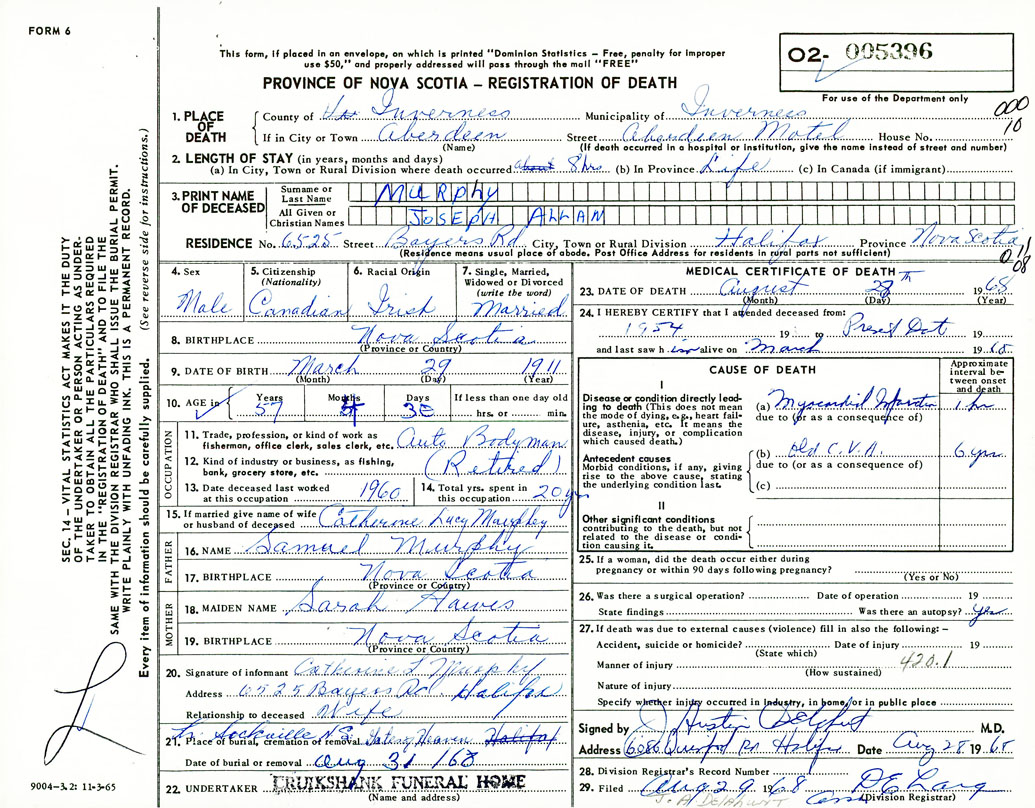 FORM 6
This form, if placed in an envelope, on which is printed "Dominion Statistics – Free, penalty for improper
use $50," and properly addressed will pass through the mail "FREE"
PROVINCE OF NOVA SCOTIA – REGISTRATION OF DEATH
02- 005396
For use of the Department only
000
10
1. PLACE OF DEATH
County of Inverness Municipality of Inverness
If in City or Town Aberdeen Street Aberdeen Motel House No.
(Name) (If death occurred in a hospital or institution, give the name instead of street and number)
2. LENGTH OF STAY (in years, months and days)
(a) In City, Town or Rural Division where death occurred about 8 hrs (b) In Province Life (c) In Canada (if immigrant)
3. PRINT NAME OF DECEASED
Surname or Last Name MURPHY
All Given or Christian Names JOSEPH ALLAN
RESIDENCE No. 6525 Street Bayers Rd City, Town or Rural Division Halifax Province Nova Scotia
(Residence means usual place of abode. Post Office Address for residents in rural parts not sufficient)
08
4. Sex Male
5. Citizenship (Nationality) Canadian
6. Racial Origin Irish
7. Single, Married, Widowed or Divorced (write the word) Married
8. BIRTHPLACE Nova Scotia
(Province or Country)
9. DATE OF BIRTH March 29 1911
(Month) (Day) (Year)
10. AGE in Years 57 Months Days 30 If less than one day old
hrs. or min.
OCCUPATION
11. Trade, profession, or kind of work as fisherman, office clerk, sales clerk, etc. Auto Bodyman
12. Kind of industry or business, as fishing, bank, grocery store, etc. (Retired)
13. Date deceased last worked at this occupation 1960
14. Total yrs. spent in this occupation 20 yrs
15. If married give name of wife or husband of deceased Catherine Lucy Murphy
FATHER
16. NAME Samuel Murphy
17. BIRTHPLACE Nova Scotia
(Province or Country)
MOTHER
18. MAIDEN NAME Sarah Hawes
19. BIRTHPLACE Nova Scotia
(Province or Country)
20. Signature of informant Catherine L Murphy
Address 6525 Bayers Rd Halifax
Relationship to deceased Wife
21. Place of burial, cremation or removal Sackville N.S. Haven Halifax
Date of burial or removal Aug 31 / 68
22. UNDERTAKER CRUIKSHANK FUNERAL HOME
(Name and address)
MEDICAL CERTIFICATE OF DEATH
23. DATE OF DEATH August 28th 1968
(Month) (Day) (Year)
24. I HEREBY CERTIFY that I attended deceased from:
1954 19 to Present Dat 19
and last saw him alive on March 1968
CAUSE OF DEATH
Approximate interval between onset and death
I
Disease or condition directly leading to death (This does not mean the mode of dying, e.g., heart failure, asthenia, etc. It means the disease, injury, or complication which caused death.)
(a) Myocardial Infarction 1 hr
due to (or as a consequence of)
Antecedent causes
Morbid conditions, if any, giving rise to the above cause, stating the underlying condition last.
(b) Old C.V.A. 6 yrs
due to (or as a consequence of)
(c)
II
Other significant conditions
contributing to the death, but not related to the disease or condition causing it.
25. If a woman, did the death occur either during
pregnancy or within 90 days following pregnancy?
(Yes or No)
26. Was there a surgical operation? Date of operation 19
State findings Was there an autopsy? yes
27. If death was due to external causes (violence) fill in also the following: –
Accident, suicide or homicide? Date of injury 19
(State which)
Manner of injury 420.1
(How sustained)
Nature of injury
Specify whether injury occurred in industry, in home, or in public place
Signed by M.D.
Address 6086 Quinpool Rd Halifax Date Aug 28 1968
28. Division Registrar's Record Number
29. Filed Aug 29 1968
(Division Registrar)
SEC. 14 – VITAL STATISTICS ACT MAKES IT THE DUTY
OF THE UNDERTAKER OR PERSON ACTING AS UNDER-
TAKER TO OBTAIN ALL THE PARTICULARS REQUIRED
IN THE "REGISTRATION OF DEATH" AND TO FILE THE
SAME WITH THE DIVISION REGISTRAR WHO SHALL ISSUE THE BURIAL PERMIT.
WRITE PLAINLY WITH UNFADING INK. THIS IS A PERMANENT RECORD.
Every item of information should be carefully supplied. (See reverse side for instructions.)
9004–3.2: 11-3-65